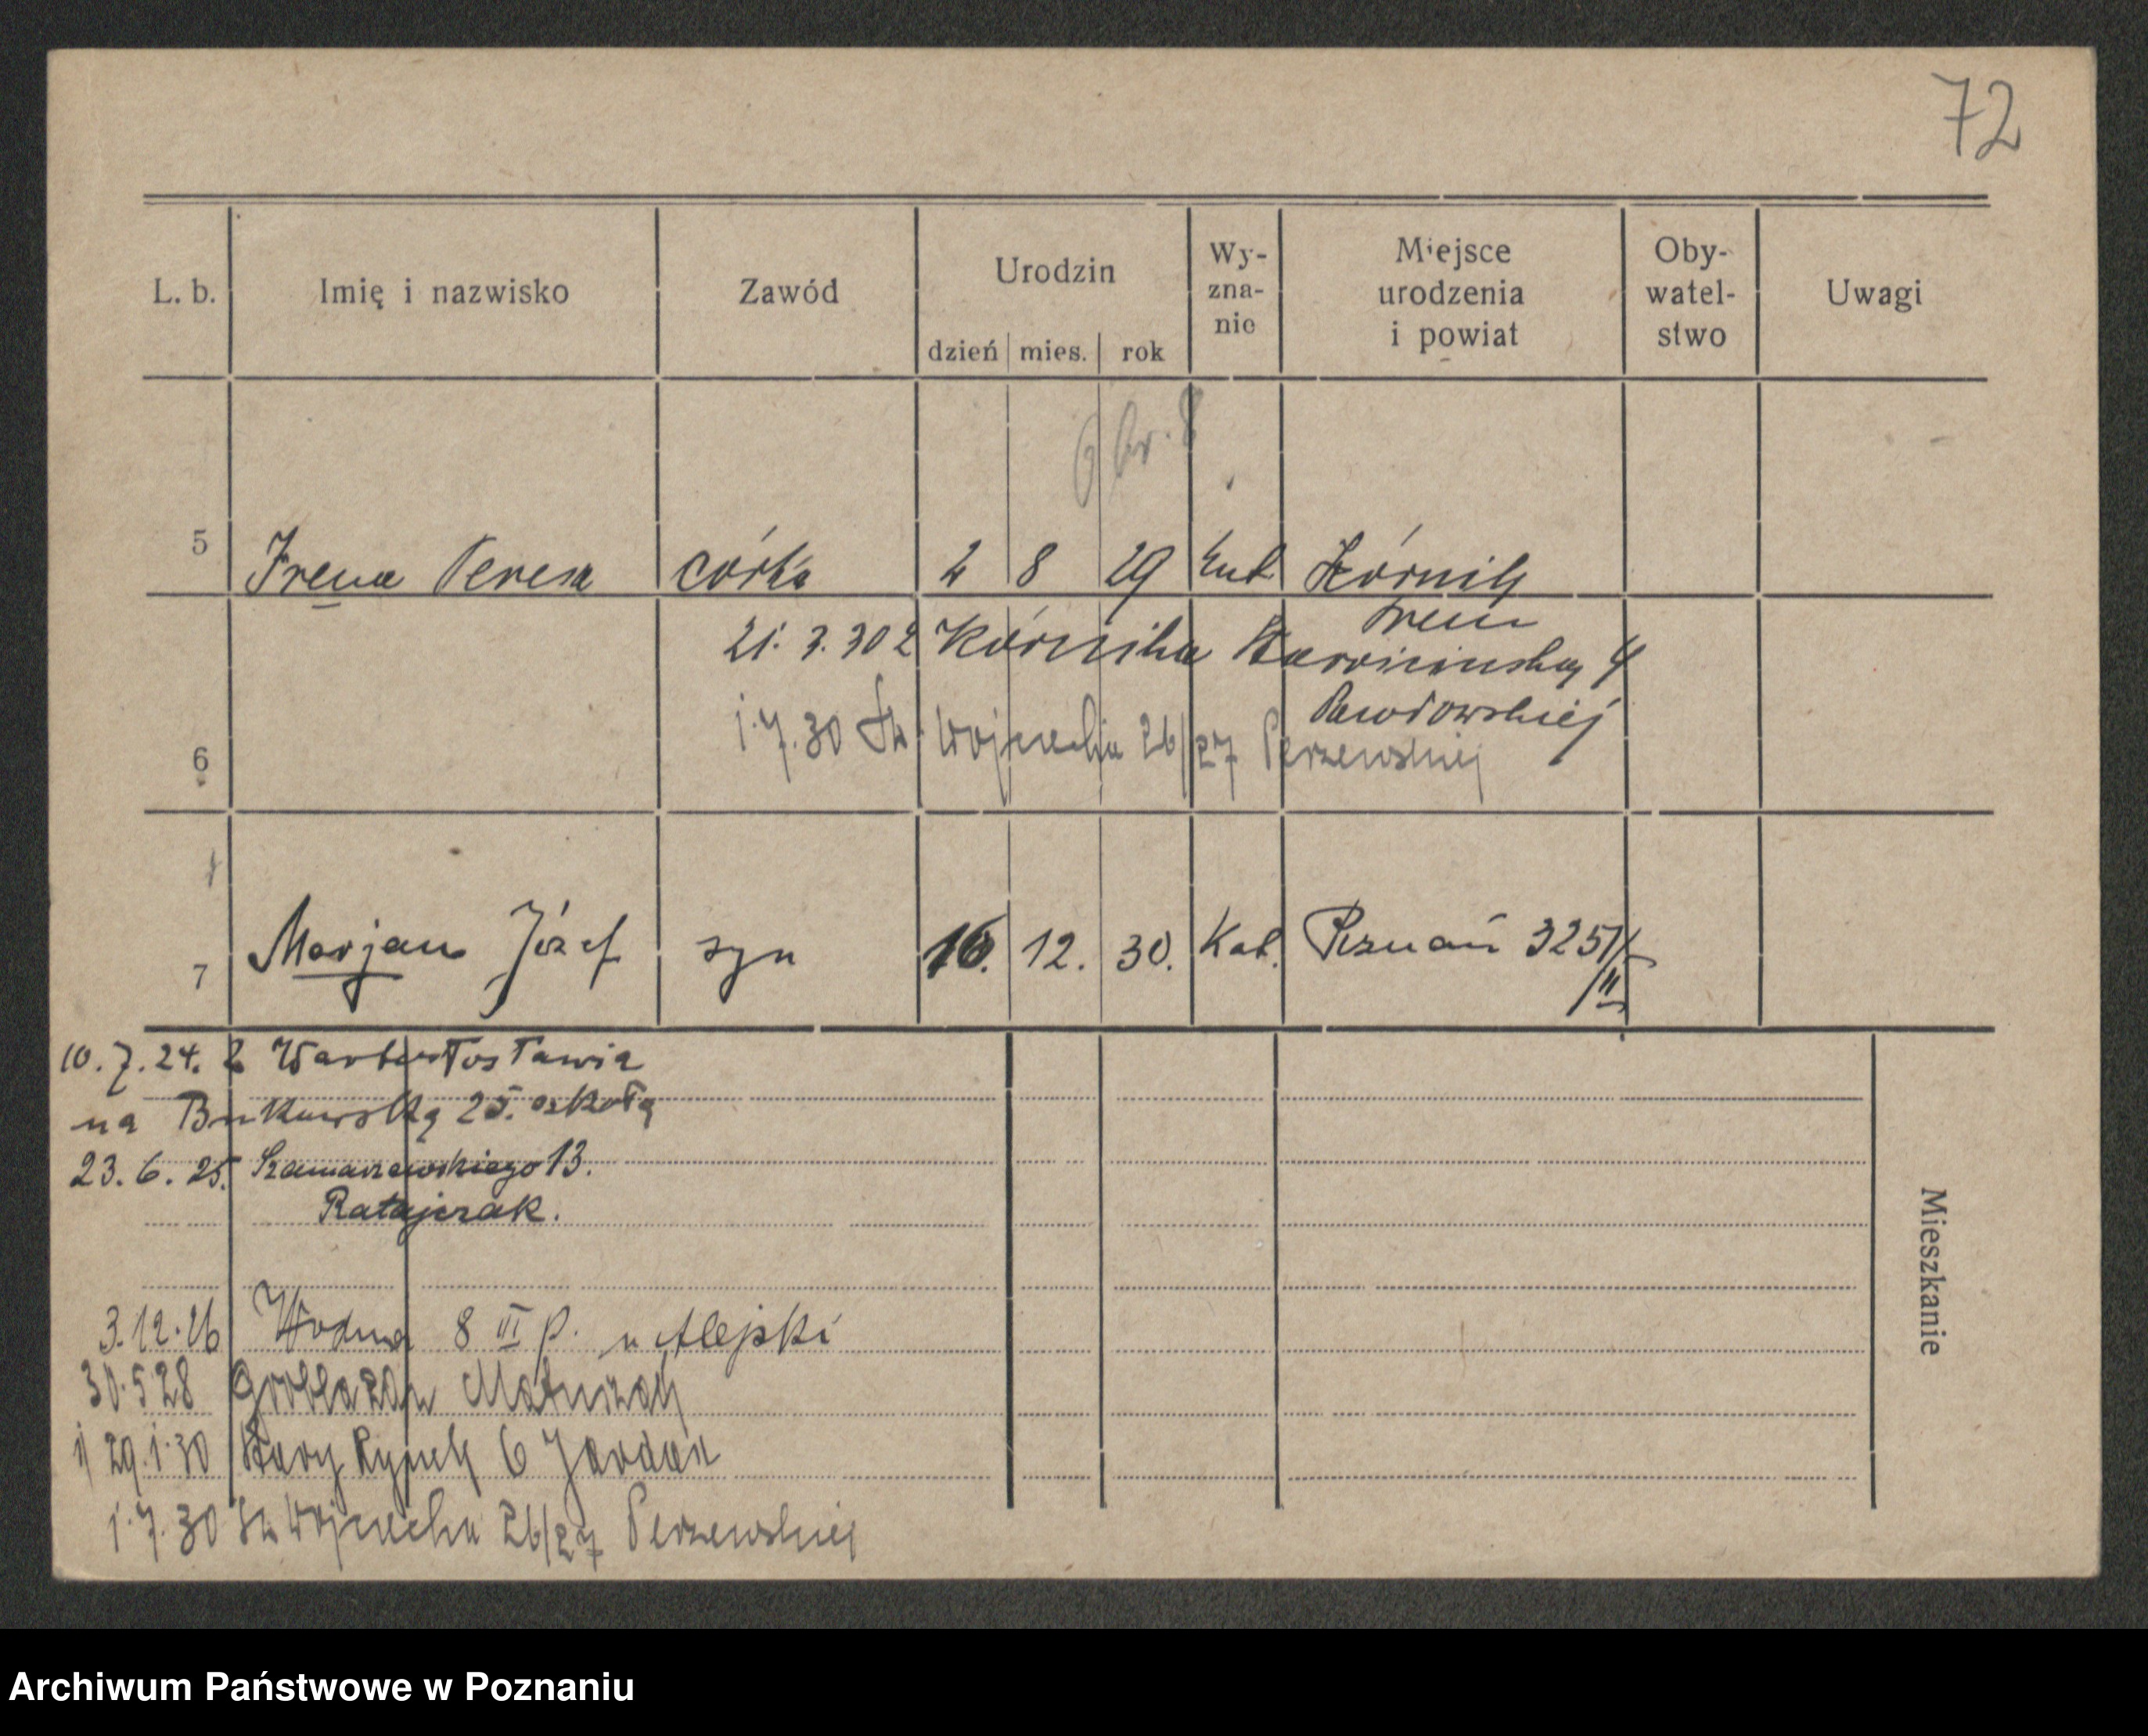 72
L. b.
Imię i nazwisko
Zawód
Urodzin
dzień mies. rok
Wy-
zna-
nie
Miejsce
urodzenia
i powiat
Oby-
watel-
stwo
Uwagi
5 Irena Teresa córka 2 8 29 kat Kórnik
Śrem
21. 3. 30 z Kórnika 4
1.7.30 Św. Wojciecha 26/27 Perzewskiej
6
7 Marjan Józef syn 16. 12. 30. Kat. Poznań 3251/
III
10. 7. 24. z
na Bukowską 25. szkoła
23. 6. 25. Szamarzewskiego 13.
Ratajczak.
3.12.26 Wodna 8 III p. u Alejski
30.5 28 Grobla Matuszak
29.1.30 Stary Rynek 6 Jordan
1.7.30 Św Wojciecha 26/27 Perzewskiej
Mieszkanie
Archiwum Państwowe w Poznaniu